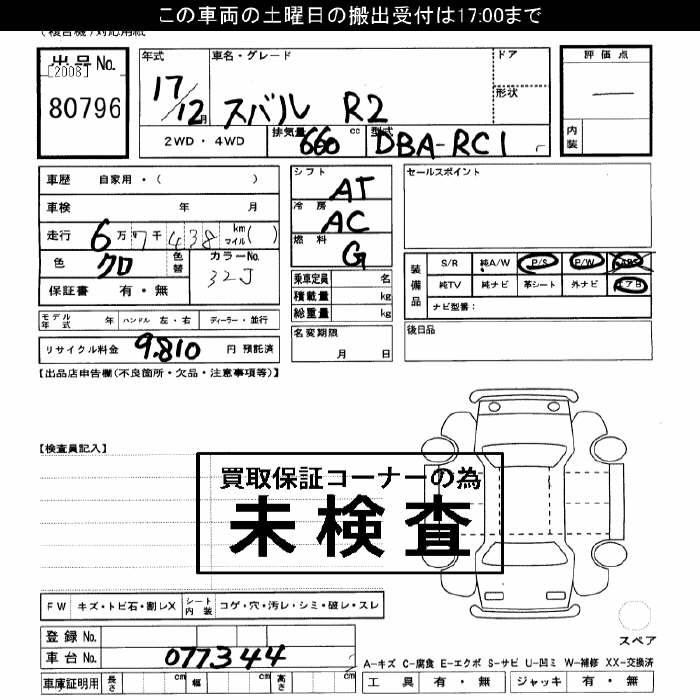 この車両の土曜日の搬出受付は17:00まで
(複合機)対応用紙
出品No. 年式 車名・グレード ドア 評価点
[2008]
80796 17/12月 スバル R2 形状 —
2WD・4WD 排気量 660 cc 型式 DBA-RC1 内装
車歴 自家用・( ) シフト AT セールスポイント
車検 年 月 冷房 AC
走行 6万7千438 km マイル( ) 燃料 G
色 クロ 色替 カラーNo. 32J
保証書 有・無
乗車定員 名
積載量 kg
総重量 kg
装備品 S/R 純A/W P/S P/W ABS
純TV 純ナビ 革シート 外ナビ エアB
ナビ型番:
モデル年式 年 ハンドル 左・右 ディーラー・並行
名変期限 月 日
後日品
リサイクル料金 9,810 円 預託済
【出品店申告欄(不良箇所・欠品・注意事項等)】
【検査員記入】
買取保証コーナーの為
未検査
FW キズ・トビ石・割レX シート内装 コゲ・穴・汚レ・シミ・破レ・スレ
登録No.
車台No. 077344
スペア
A-キズ C-腐食 E-エクボ S-サビ U-凹ミ W-補修 XX-交換済
車庫証明用 長さ 幅 高さ
工具 有・無 ジャッキ 有・無